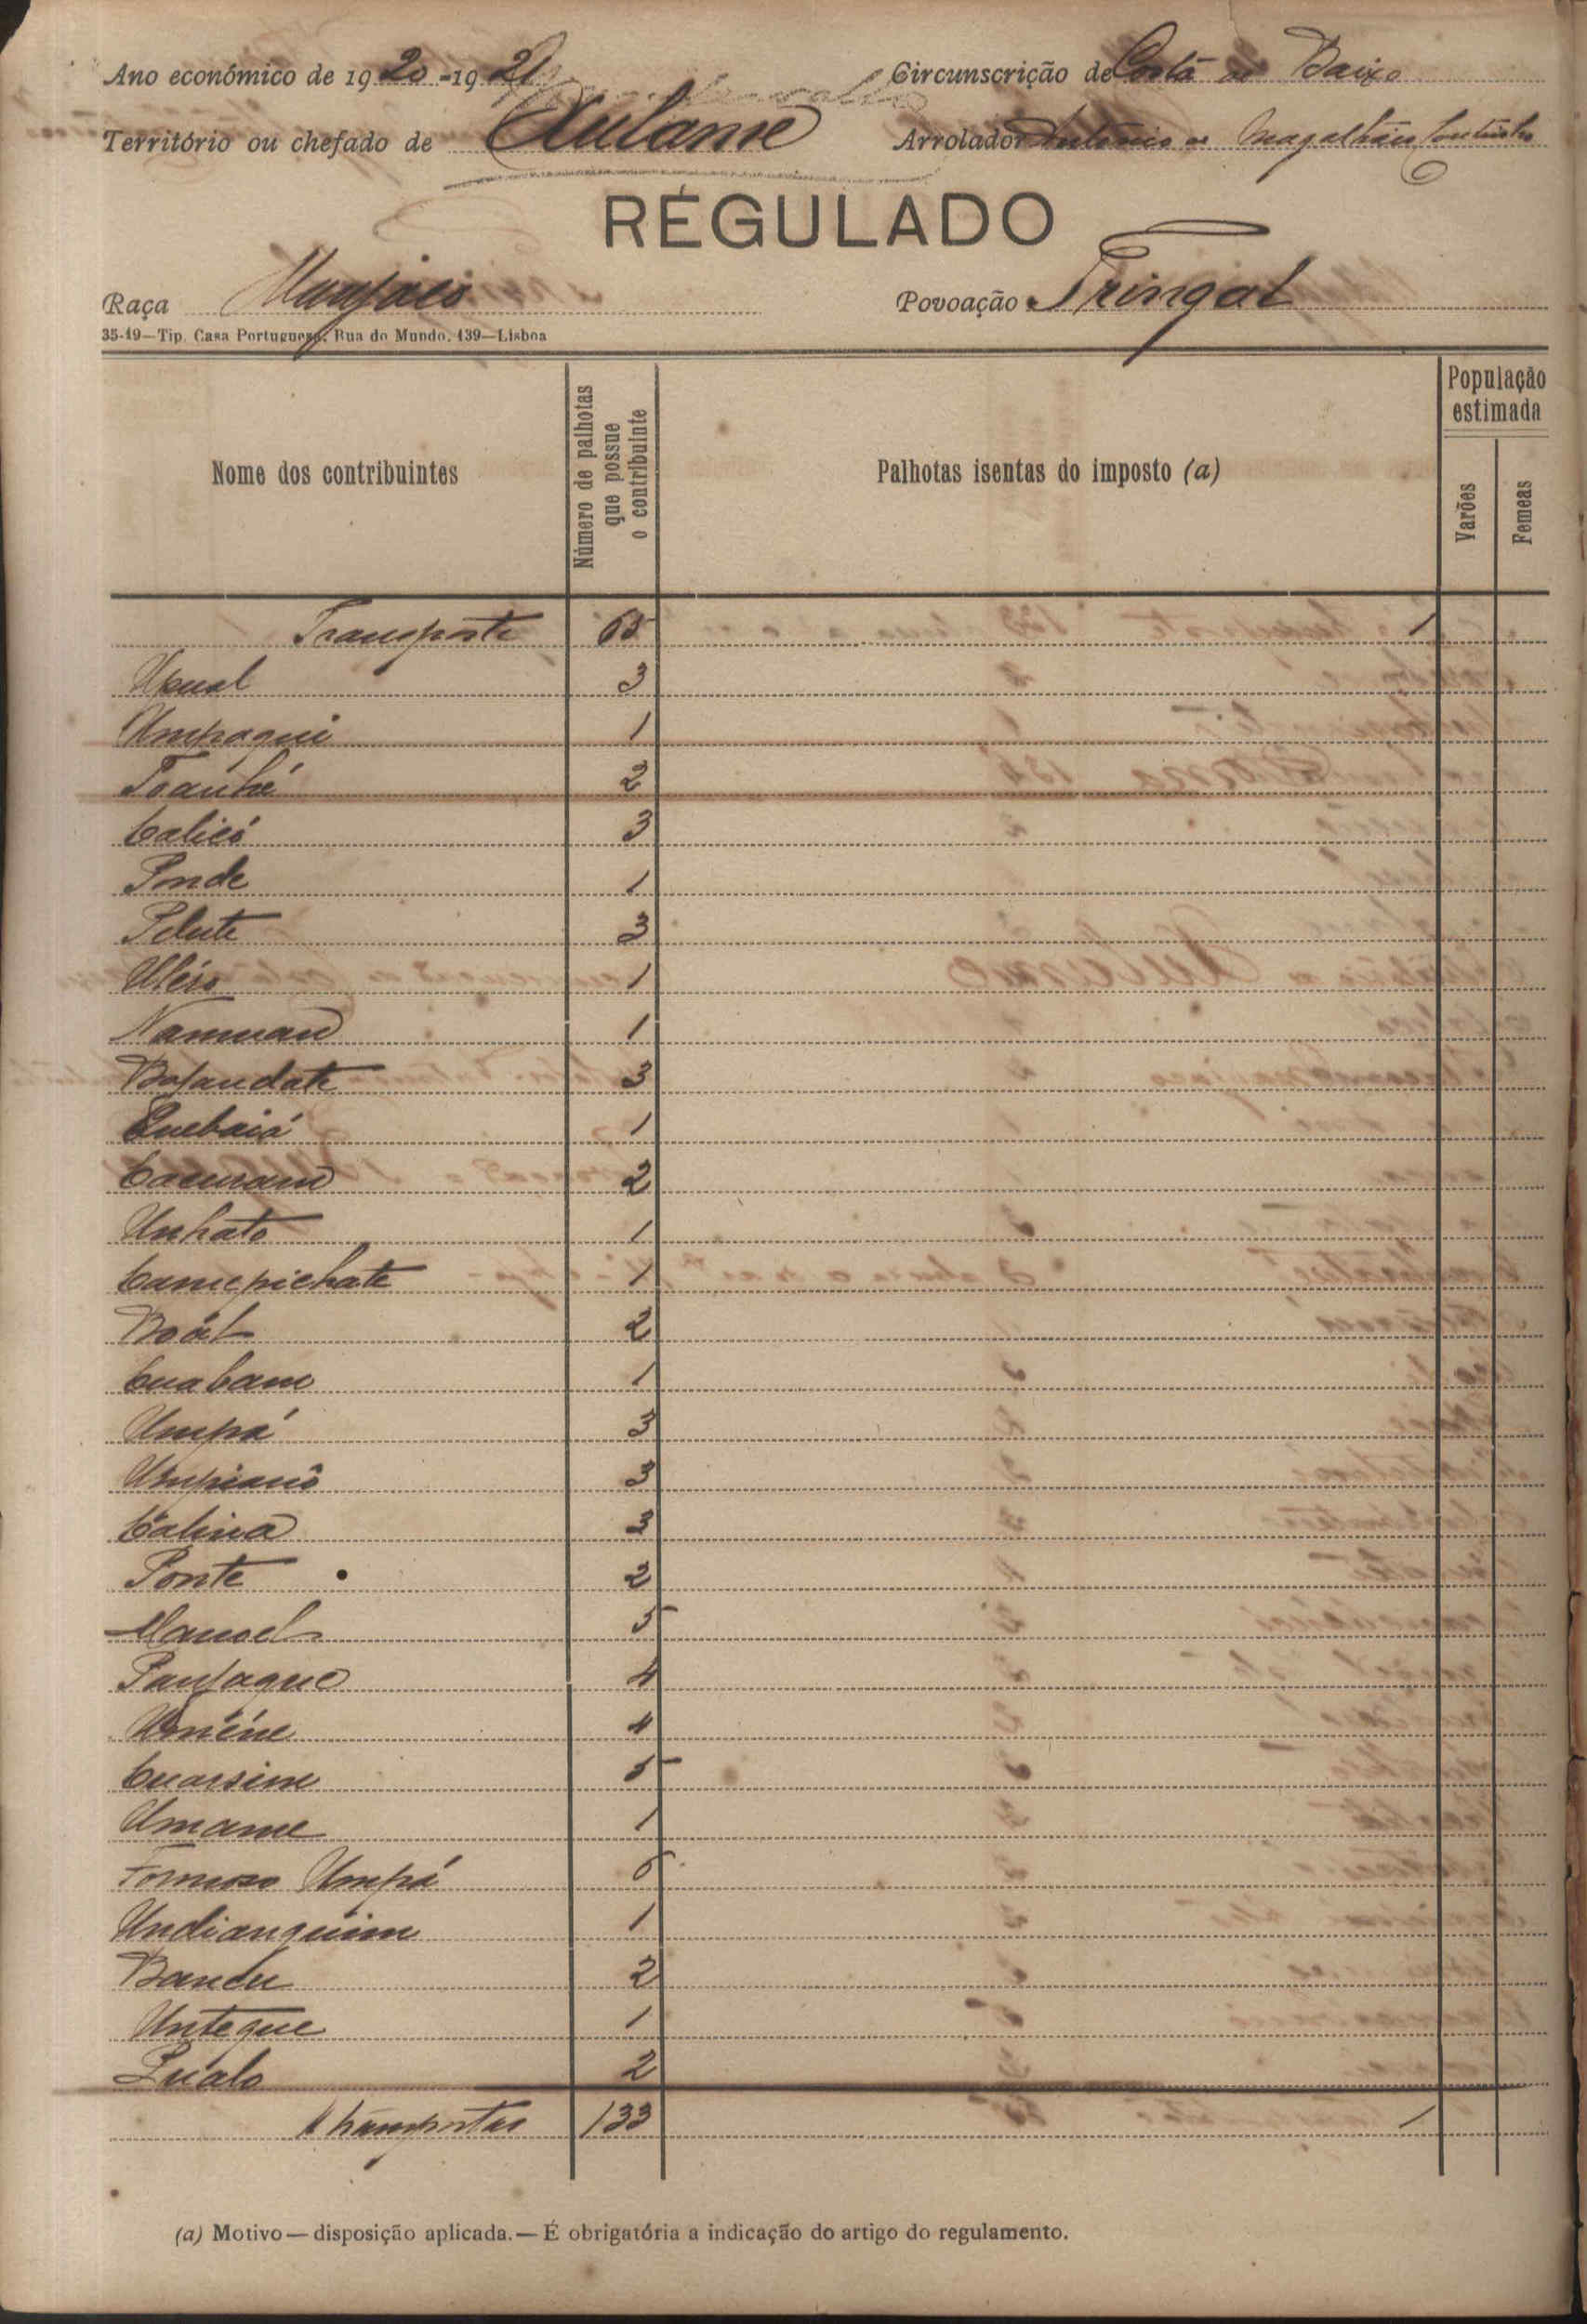 Ano económico de 1920-1921 Circunscrição de Costa de Baixo
Território ou chefado de Arrolador António de Magalhães
RÉGULADO
Raça Manjaco Povoação Tringal
35-19—Tip. Casa Portuguesa, Rua do Mundo, 139—Lisboa
Nome dos contribuintes
Número de palhotas que possue o contribuinte
Palhotas isentas do imposto (a)
População estimada
Varões
Femeas
Transporte 65 1
3
Umpaqui 1
Toanhé 2
Calicó 3
Ponde 1
Pelute 3
1
1
Bofandate 3
Quebaiá 1
2
Unhato 1
Camepichate 1
Boál 2
1
Umpá 3
3
Calina 3
Ponte 2
Manoel 5
Panfaque 4
4
Cuassim 5
Umame 1
Formoso Umpá 6
Undianquim 1
2
Unteque 1
2
A transportar 133 1
(a) Motivo — disposição aplicada. — É obrigatória a indicação do artigo do regulamento.